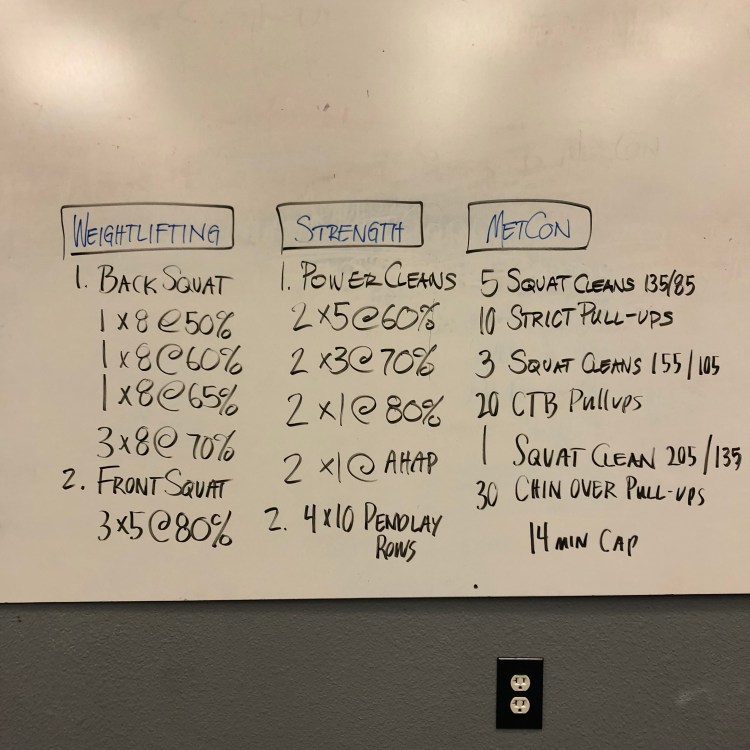 WEIGHTLIFTING
1. BACK SQUAT
1 x 8 @ 50%
1 x 8 @ 60%
1 x 8 @ 65%
3 x 8 @ 70%
2. FRONT SQUAT
3 x 5 @ 80%
STRENGTH
1. POWER CLEANS
2 x 5 @ 60%
2 x 3 @ 70%
2 x 1 @ 80%
2 x 1 @ AHAP
2. 4 x 10 PENDLAY
ROWS
METCON
5 SQUAT CLEANS 135/85
10 STRICT PULL-UPS
3 SQUAT CLEANS 155/105
20 CTB Pullups
1 SQUAT CLEAN 205/135
30 CHIN OVER PULL-UPS
14 MIN CAP